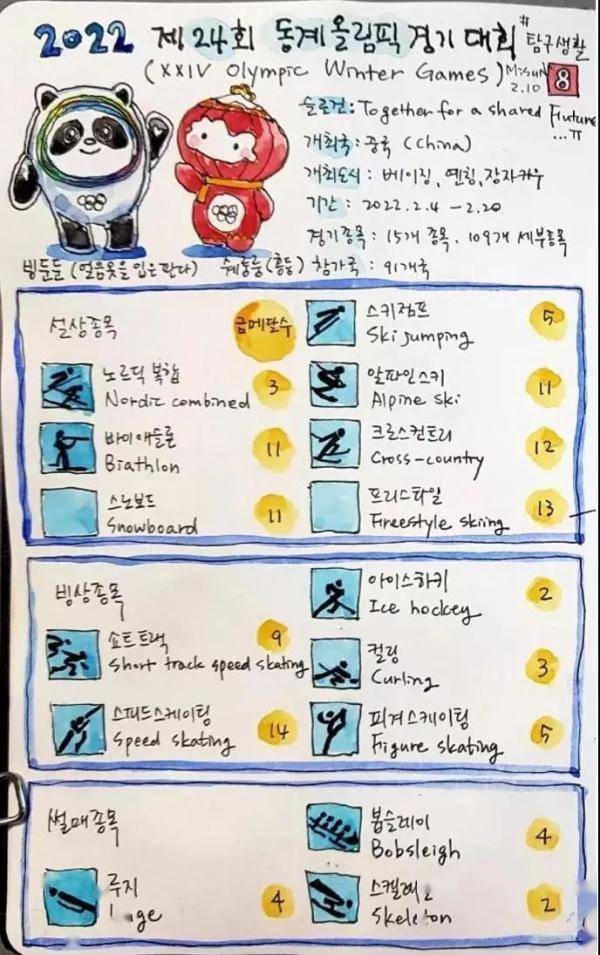 2022 제24회 동계올림픽 경기 대회 #탐구생활
(XXIV Olympic Winter Games) Misun 2.10 8
슬로건: Together for a shared Future
...π
개최국: 중국 (China)
개최도시: 베이징, 옌칭, 장자커우
기간: 2022.2.4 - 2.20
경기종목: 15개 종목. 109개 세부종목
빙둔둔 (얼음옷을 입은 판다) 쉐룽룽 (홍등) 참가국: 91개국
설상종목 금메달수
스키점프 5
Ski jumping
노르딕 복합 3
Nordic combined
알파인스키 11
Alpine ski
바이애슬론 11
Biathlon
크로스컨트리 12
Cross-country
스노보드 11
Snowboard
프리스타일 13
Freestyle skiing
빙상종목
아이스하키 2
Ice hockey
쇼트트랙 9
Short track speed skating
컬링 3
Curling
스피드스케이팅 14
Speed skating
피겨스케이팅 5
Figure skating
썰매종목
봅슬레이 4
Bobsleigh
루지 4
스켈레 2